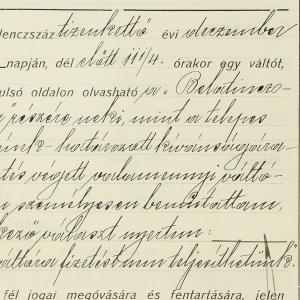 lenczszáz tizenkettő évi deczember
napján, dél előtt 11 1/4. órakor egy váltót,
ulsó oldalon olvasható a „Belatincz-
részére neki, mint a telepes
ének határozott kivánságára
tés végett valamennyi váltó-
személyesen bemutattam,
kező választ nyertem:
váltóra fizetést nem teljesíthetünk."
fél jogai megóvására és fentartására, jelen